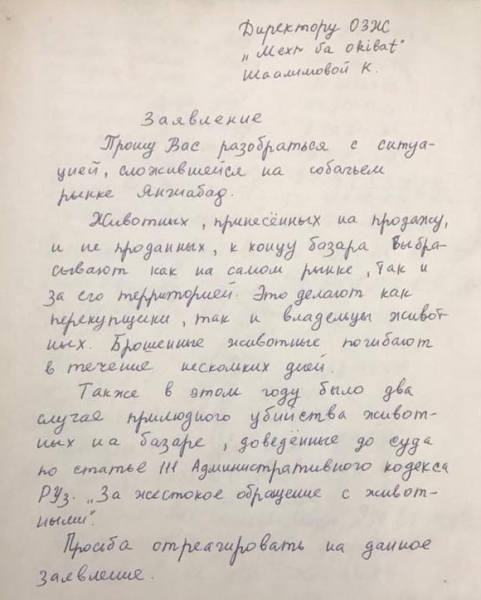 Директору ОЗЖ
„Mexr ба okibat"
Шаалимовой К.
Заявление
Прошу Вас разобраться с ситуа-
цией, сложившейся на собачьем
рынке Янгиабад.
Животных, принесённых на продажу,
и не проданных, к концу базара выбра-
сывают как на самом рынке, так и
за его территорией. Это делают как
перекупщики, так и владельцы живот-
ных. Брошенные животные погибают
в течение нескольких дней.
Также в этом году было два
случае прилюдного убийства живот-
ных на базаре, доведённые до суда
по статье 111 Административного кодекса
РУз. „За жестокое обращение с живот-
ными".
Просьба отреагировать на данное
заявление.